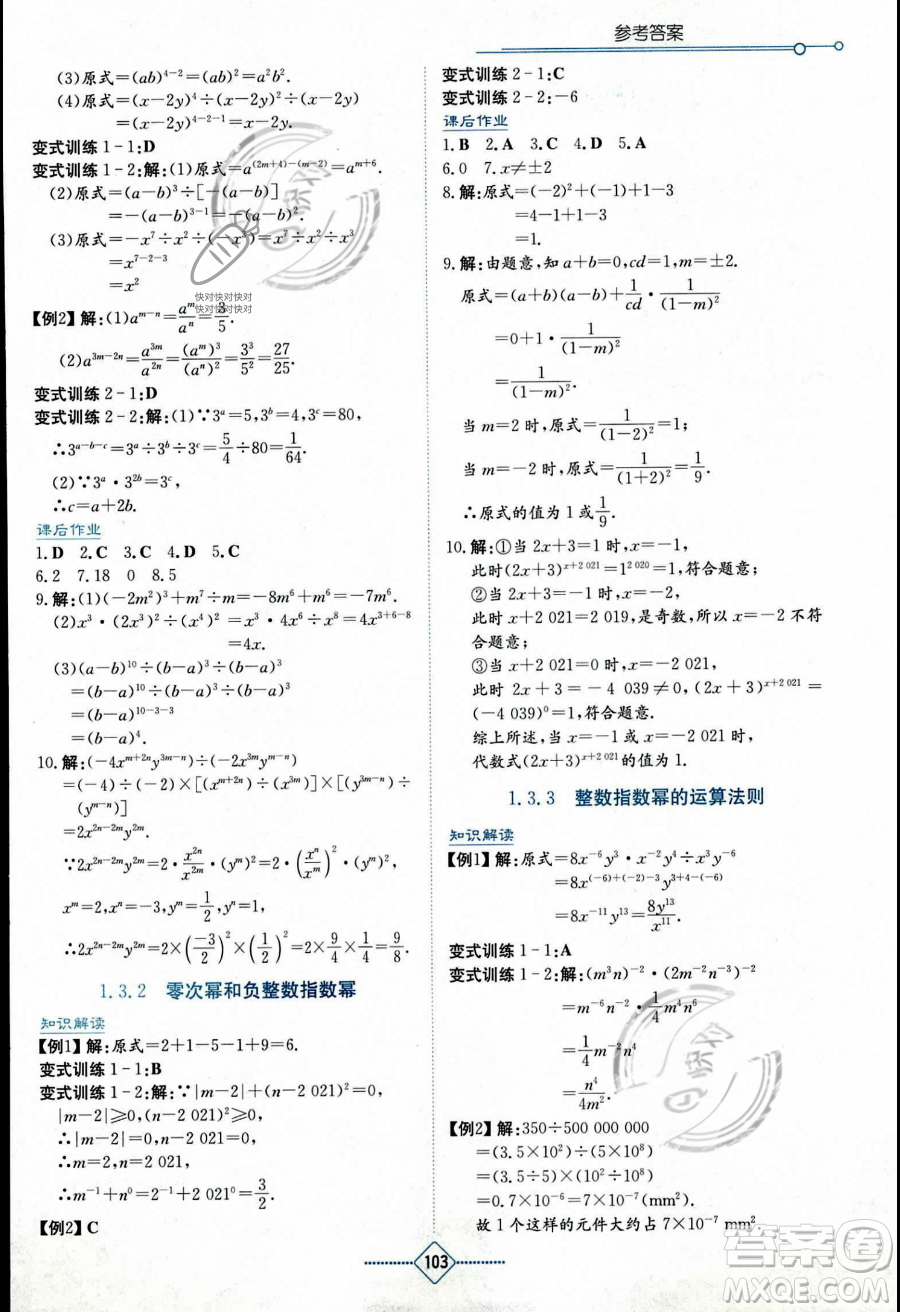 参考答案
(3)原式=(ab)⁴⁻²=(ab)²=a²b².
(4)原式=(x-2y)⁴÷(x-2y)²÷(x-2y)
=(x-2y)⁴⁻²⁻¹=x-2y.
变式训练1-1:D
变式训练1-2:解:(1)原式=a^{(2m+4)-(m-2)}=a^{m+6}.
(2)原式=(a-b)³÷[-(a-b)]
=-(a-b)³⁻¹=-(a-b)².
(3)原式=-x⁷÷x²÷(-x³)=x⁷÷x²÷x³
=x⁷⁻²⁻³
=x²
【例2】解:(1)a^{m-n}=a^m/a^n=3/5.
(2)a^{3m-2n}=a^{3m}/a^{2n}=(a^m)³/(a^n)²=3³/5²=27/25.
变式训练2-1:D
变式训练2-2:解:(1)∵3^a=5,3^b=4,3^c=80,
∴3^{a-b-c}=3^a÷3^b÷3^c=5/4÷80=1/64.
(2)∵3^a·3^{2b}=3^c,
∴c=a+2b.
课后作业
1.D 2.C 3.C 4.D 5.C
6.2 7.18 0 8.5
9.解:(1)(-2m²)³+m⁷÷m=-8m⁶+m⁶=-7m⁶.
(2)x³·(2x³)²÷(x⁴)²=x³·4x⁶÷x⁸=4x³⁺⁶⁻⁸
=4x.
(3)(a-b)¹⁰÷(b-a)³÷(b-a)³
=(b-a)¹⁰÷(b-a)³÷(b-a)³
=(b-a)¹⁰⁻³⁻³
=(b-a)⁴.
10.解:(-4x^{m+2n}y^{3m-n})÷(-2x^{3m}y^{m-n})
=(-4)÷(-2)×[(x^{m+2n})÷(x^{3m})]×[(y^{3m-n})÷
(y^{m-n})]
=2x^{2n-2m}y^{2m}
∵2x^{2n-2m}y^{2m}=2·x^{2n}/x^{2m}·(y^m)²=2·(x^n/x^m)²·(y^m)²,
x^m=2,x^n=-3,y^m=1/2,y^n=-1,
∴2x^{2n-2m}y^{2m}=2×(-3/2)²×(1/2)²=2×9/4×1/4=9/8.
1.3.2 零次幂和负整数指数幂
知识解读
【例1】解:原式=2+1-5-1+9=6.
变式训练1-1:B
变式训练1-2:解:∵|m-2|+(n-2 021)²=0,
|m-2|≥0,(n-2 021)²≥0,
∴|m-2|=0,(n-2 021)²=0,
∴m=2,n=2 021,
∴m⁻¹+n⁰=2⁻¹+2 021⁰=1/2+1=3/2.
【例2】C
变式训练2-1:C
变式训练2-2:-6
课后作业
1.B 2.A 3.C 4.D 5.A
6.0 7.x≠±2
8.解:原式=(-2)²+(-1)+1-3
=4-1+1-3
=1.
9.解:由题意,知a+b=0,cd=1,m=±2.
原式=(a+b)(a-b)+1/cd·1/(1-m)²
=0+1·1/(1-m)²
=1/(1-m)².
当m=2时,原式=1/(1-2)²=1.
当m=-2时,原式=1/(1+2)²=1/9.
∴原式的值为1或1/9.
10.解:①当2x+3=1时,x=-1,
此时(2x+3)^{x+2 021}=1^{2 020}=1,符合题意;
②当2x+3=-1时,x=-2,
此时x+2 021=2 019,是奇数,所以x=-2不符
合题意;
③当x+2 021=0时,x=-2 021,
此时2x+3=-4 039≠0,(2x+3)^{x+2 021}=
(-4 039)⁰=1,符合题意.
综上所述,当x=-1或x=-2 021时,
代数式(2x+3)^{x+2 021}的值为1.
1.3.3 整数指数幂的运算法则
知识解读
【例1】解:原式=8x⁻⁶y³·x⁻²y⁴÷x³y⁻⁶
=8x^{(-6)+(-2)-3}y^{3+4-(-6)}
=8x⁻¹¹y¹³=8y¹³/x¹¹.
变式训练1-1:A
变式训练1-2:解:(m³n)⁻²·(2m⁻²n⁻³)⁻²
=m⁻⁶n⁻²·1/4m⁴n⁶
=1/4m⁻²n⁴
=n⁴/4m².
【例2】解:350÷500 000 000
=(3.5×10²)÷(5×10⁸)
=(3.5÷5)×(10²÷10⁸)
=0.7×10⁻⁶=7×10⁻⁷(mm²).
故1个这样的元件大约占7×10⁻⁷ mm².
103
快对快对快对
快对快对快对
答案圈
MXQE.COM